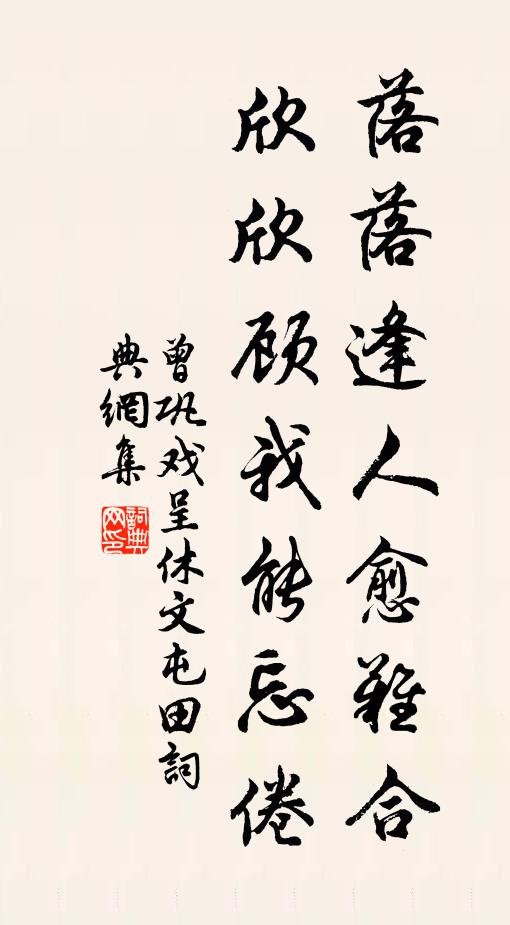 落落逢人愈難合
欣欣顾我能忘倦
曾巩戏呈休文屯田詞
典網集
詞典网印